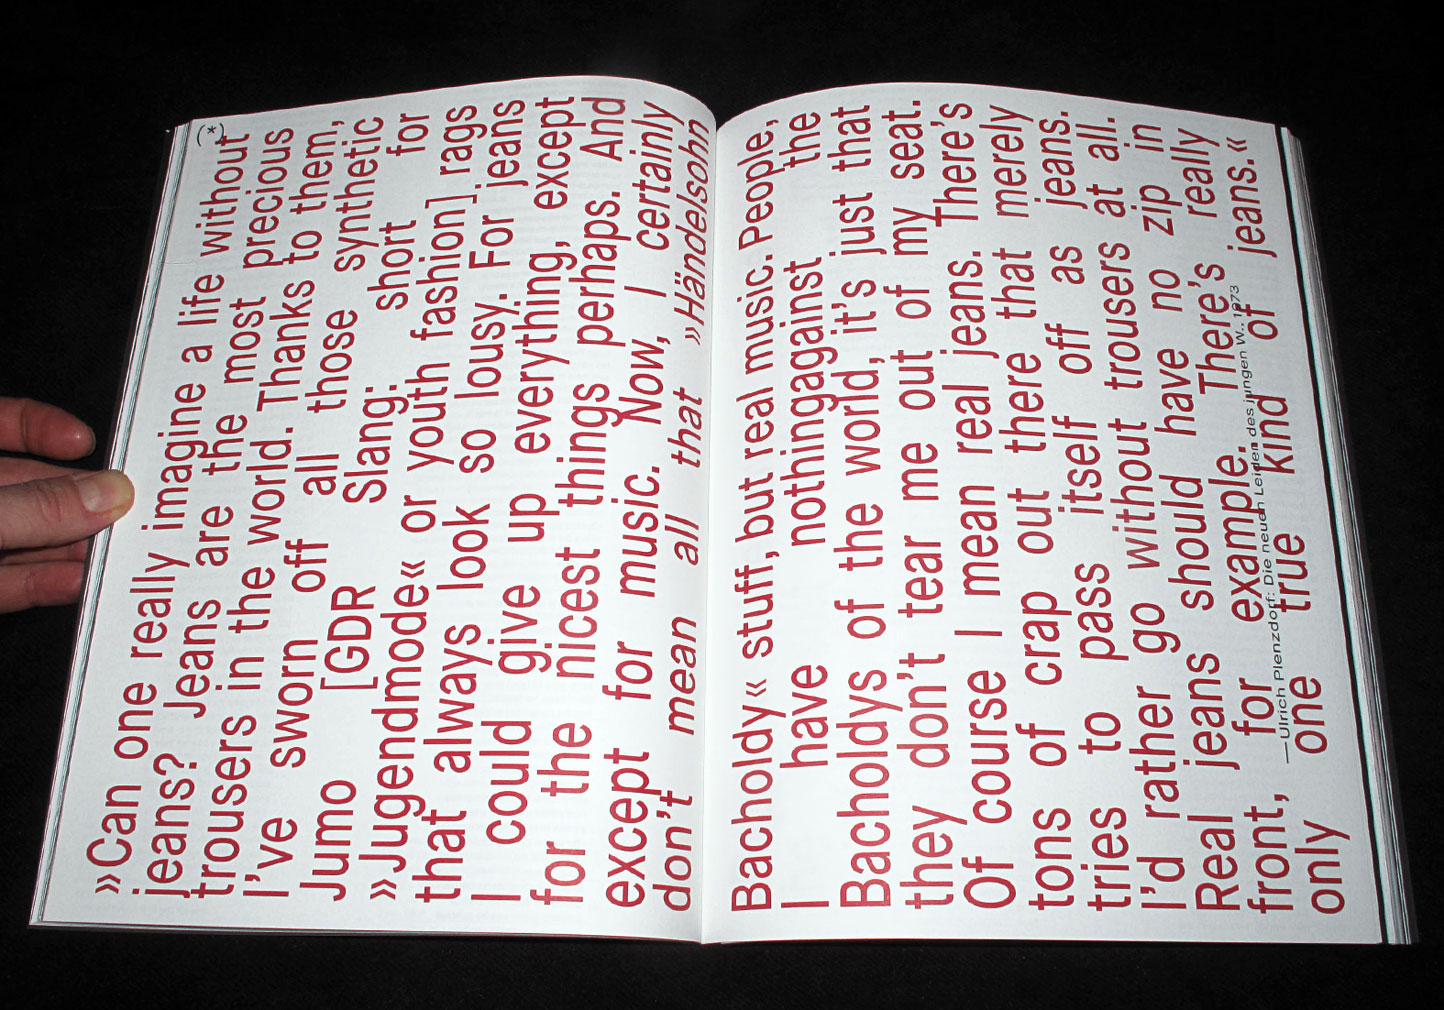 (*)
»Can one really imagine a life without
jeans? Jeans are the most precious
trousers in the world. Thanks to them,
I've sworn off all those synthetic
Jumo [GDR Slang: short for
»Jugendmode« or youth fashion] rags
that always look so lousy. For jeans
I could give up everything, except
for the nicest things perhaps. And
except for music. Now, I certainly
don't mean all that »Händelsohn
Bacholdy« stuff, but real music. People,
I have nothingagainst the
Bacholdys of the world, it's just that
they don't tear me out of my seat.
Of course I mean real jeans. There's
tons of crap out there that merely
tries to pass itself off as jeans.
I'd rather go without trousers at all.
Real jeans should have no zip in
front, for example. There's really
only one true kind of jeans.«
—Ulrich Plenzdorf: Die neuen Leiden des jungen W., 1973